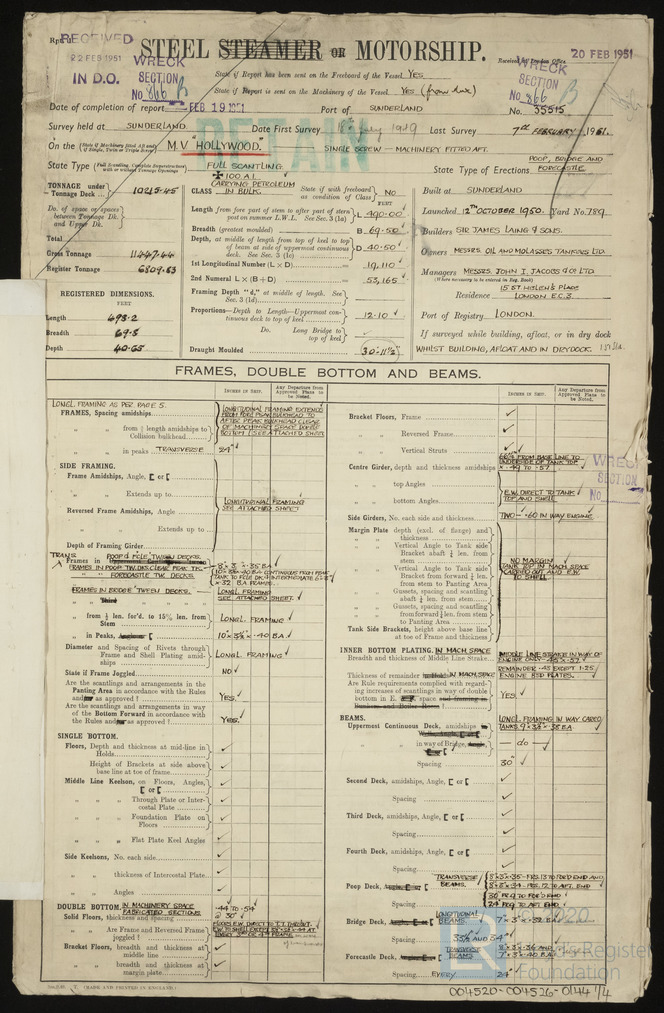 RECEIVED
22 FEB 1951
IN D.O.
WRECK
SECTION
No. 866 B
STEEL STEAMER OR MOTORSHIP.
20 FEB 1951
Received
WRECK
SECTION
No. 866 B
State if Report has been sent on the Freeboard of the Vessel Yes
State if Report is sent on the Machinery of the Vessel. Yes
Date of completion of report FEB 19 1951 Port of SUNDERLAND No. 35515
RETAIN
Survey held at SUNDERLAND Date First Survey July 1949 Last Survey 7TH FEBRUARY, 1951.
On the M.V "HOLLYWOOD." SINGLE SCREW – MACHINERY FITTED AFT.
State Type FULL SCANTLING. State Type of Erections POOP, BRIDGE AND FORECASTLE.
TONNAGE under Tonnage Deck... 10215.45
Do. of space or spaces between Tonnage Dk. and Upper Dk.
Total
Gross Tonnage 11247.44
Register Tonnage 6809.83
REGISTERED DIMENSIONS.
FEET
Length 493.2
Breadth 69.8
Depth
CLASS 100.A1. CARRYING PETROLEUM IN BULK.
State if with freeboard as condition of Class No
FEET
Length from fore part of stem to after part of stern post on summer L.W.L. See Sec. 3 (1a) L 490.00
Breadth (greatest moulded) B 69.50
Depth, at middle of length from top of keel to top of beam at side of uppermost continuous deck. See Sec. 3 (1c) D 40.50
1st Longitudinal Number (L × D) 19,110
2nd Numeral L × (B + D) 53,165
Framing Depth "d," at middle of length. See Sec. 3 (1d)
Proportions—Depth to Length—Uppermost continuous deck to top of keel 12.10
Do. Long Bridge to top of keel
Draught Moulded 30-11½
Built at SUNDERLAND
Launched 12TH OCTOBER 1950. Yard No. 789.
Builders SIR JAMES LAING & SONS.
Owners MESSRS. OIL AND MOLASSES TANKERS LTD.
Managers MESSRS. JOHN I. JACOBS & CO LTD.
(Where necessary to be entered in Reg. Book)
Residence 15 ST HELEN'S PLACE LONDON E.C.3.
Port of Registry LONDON.
If surveyed while building, afloat, or in dry dock
WHILST BUILDING, AFLOAT AND IN DRYDOCK.
FRAMES, DOUBLE BOTTOM AND BEAMS.
INCHES IN SHIP.
Any Departure from Approved Plans to be Noted.
LONGL. FRAMING AS PER PAGE 5.
FRAMES, Spacing amidships
LONGITUDINAL FRAMING EXTENDS FROM FORE PEAK BULKHEAD TO AFTER PEAK BULKHEAD CLEAR OF MACHINERY SPACE DOUBLE BOTTOM (SEE ATTACHED SHEET
" " from ⅗ length amidships to Collision bulkhead
" " in peaks TRANSVERSE 24"
SIDE FRAMING.
Frame Amidships, Angle, [ or [
" " Extends up to
Reversed Frame Amidships, Angle
" " Extends up to
LONGITUDINAL FRAMING SEE ATTACHED SHEET
Depth of Framing Girder
TRANS. Frames in POOP & F'CLE 'TWEEN DECKS.
FRAMES IN POOP TW.DKS. CLEAR PEAK TK.
" FORECASTLE TW. DECKS
FRAMES IN BRIDGE 'TWEEN DECKS. LONGL. FRAMING SEE ATTACHED SHEET.
Third
" " from ⅕ len. for'd. to 15% len. from Stem LONGL. FRAMING
" " in Peaks, 10"× 3½"× .40 BA
Diameter and Spacing of Rivets through Frame and Shell Plating amidships LONGL. FRAMING
State if Frame Joggled NO
Are the scantlings and arrangements in the Panting Area in accordance with the Rules and/or as approved? YES.
Are the scantlings and arrangements in way of the Bottom Forward in accordance with the Rules and/or as approved? YES.
SINGLE BOTTOM.
Floors, Depth and thickness at mid-line in Holds
Height of Brackets at side above base line at toe of frame
Middle Line Keelson, on Floors, Angles, [ or [
" " Through Plate or Intercostal Plate
" " Foundation Plate on Floors
" " Flat Plate Keel Angles
Side Keelsons, No. each side
" " thickness of Intercostal Plate
" " Angles
DOUBLE BOTTOM. IN MACHINERY SPACE FABRICATED SECTIONS.
Solid Floors, thickness and spacing .44 TO .54 @ 30"
" " Are Frame and Reversed Frame joggled?
Bracket Floors, breadth and thickness at middle line
" " breadth and thickness at margin plate
Bracket Floors, Frame
" " Reversed Frame
" " Vertical Struts
Centre Girder, depth and thickness amidships 66½" FROM BASE LINE TO UNDERSIDE OF TANK TOP × .49 TO .57
" " top Angles
" " bottom Angles
E.W. DIRECT TO TANK TOP AND SHELL
Side Girders, No. each side and thickness TWO – .60 IN WAY ENGINE
Margin Plate depth (excl. of flange) and thickness
" " Vertical Angle to Tank side Bracket abaft ¼ len. from stem
" " Vertical Angle to Tank side Bracket from forward ¼ len. from stem to Panting Area
" " Gussets, spacing and scantling abaft ¼ len. from stem
" " Gussets, spacing and scantling from forward ¼ len. from stem to Panting Area
Tank Side Brackets, height above base line at toe of Frame and thickness
NO MARGIN TANK TOP IN MACH SPACE CARRIED OUT AND E.W. TO SHELL
WRECK
SECTION
No.
INNER BOTTOM PLATING. IN MACH. SPACE
Breadth and thickness of Middle Line Strake MIDDLE LINE STRAKE IN WAY OF ENGINE ONLY
Thickness of remainder IN MACH SPACE REMAINDER .43 EXCEPT 1.25 ENGINE BED PLATES.
Are Rule requirements complied with regarding increases of scantlings in way of double bottom in E. space YES
BEAMS.
Uppermost Continuous Deck, amidships LONGL. FRAMING IN WAY CARGO TANKS
" " in way of Bridge, — do —
Spacing 30"
Second Deck, amidships, Angle, [ or [
Spacing
Third Deck, amidships, Angle, [ or [
Spacing
Fourth Deck, amidships, Angle, [ or [
Spacing
Poop Deck, TRANSVERSE BEAMS.
Spacing
Bridge Deck, LONGITUDINAL BEAMS
Spacing 33½ AND 34
Forecastle Deck, TRANSVERSE BEAMS
Spacing EVERY 24"
© 2020
Lloyd's Register
Foundation
(MADE AND PRINTED IN ENGLAND.)
004520-004526-0144 1/4